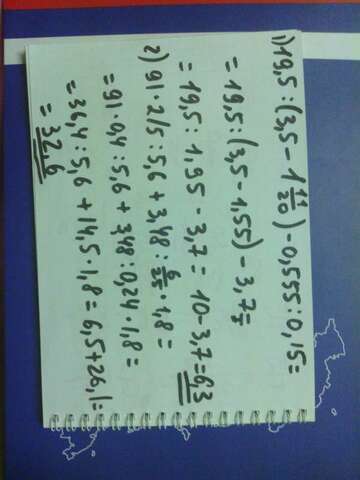 1) 19,5 : (3,5 - 1 11/20) - 0,555 : 0,15 =
= 19,5 : (3,5 - 1,55) - 3,7 =
= 19,5 : 1,95 - 3,7 = 10 - 3,7 = 6,3
2) 91 · 2/5 : 5,6 + 3,48 : 6/25 · 1,8 =
= 91 · 0,4 : 5,6 + 3,48 : 0,24 · 1,8 =
= 36,4 : 5,6 + 14,5 · 1,8 = 6,5 + 26,1 =
= 32,6